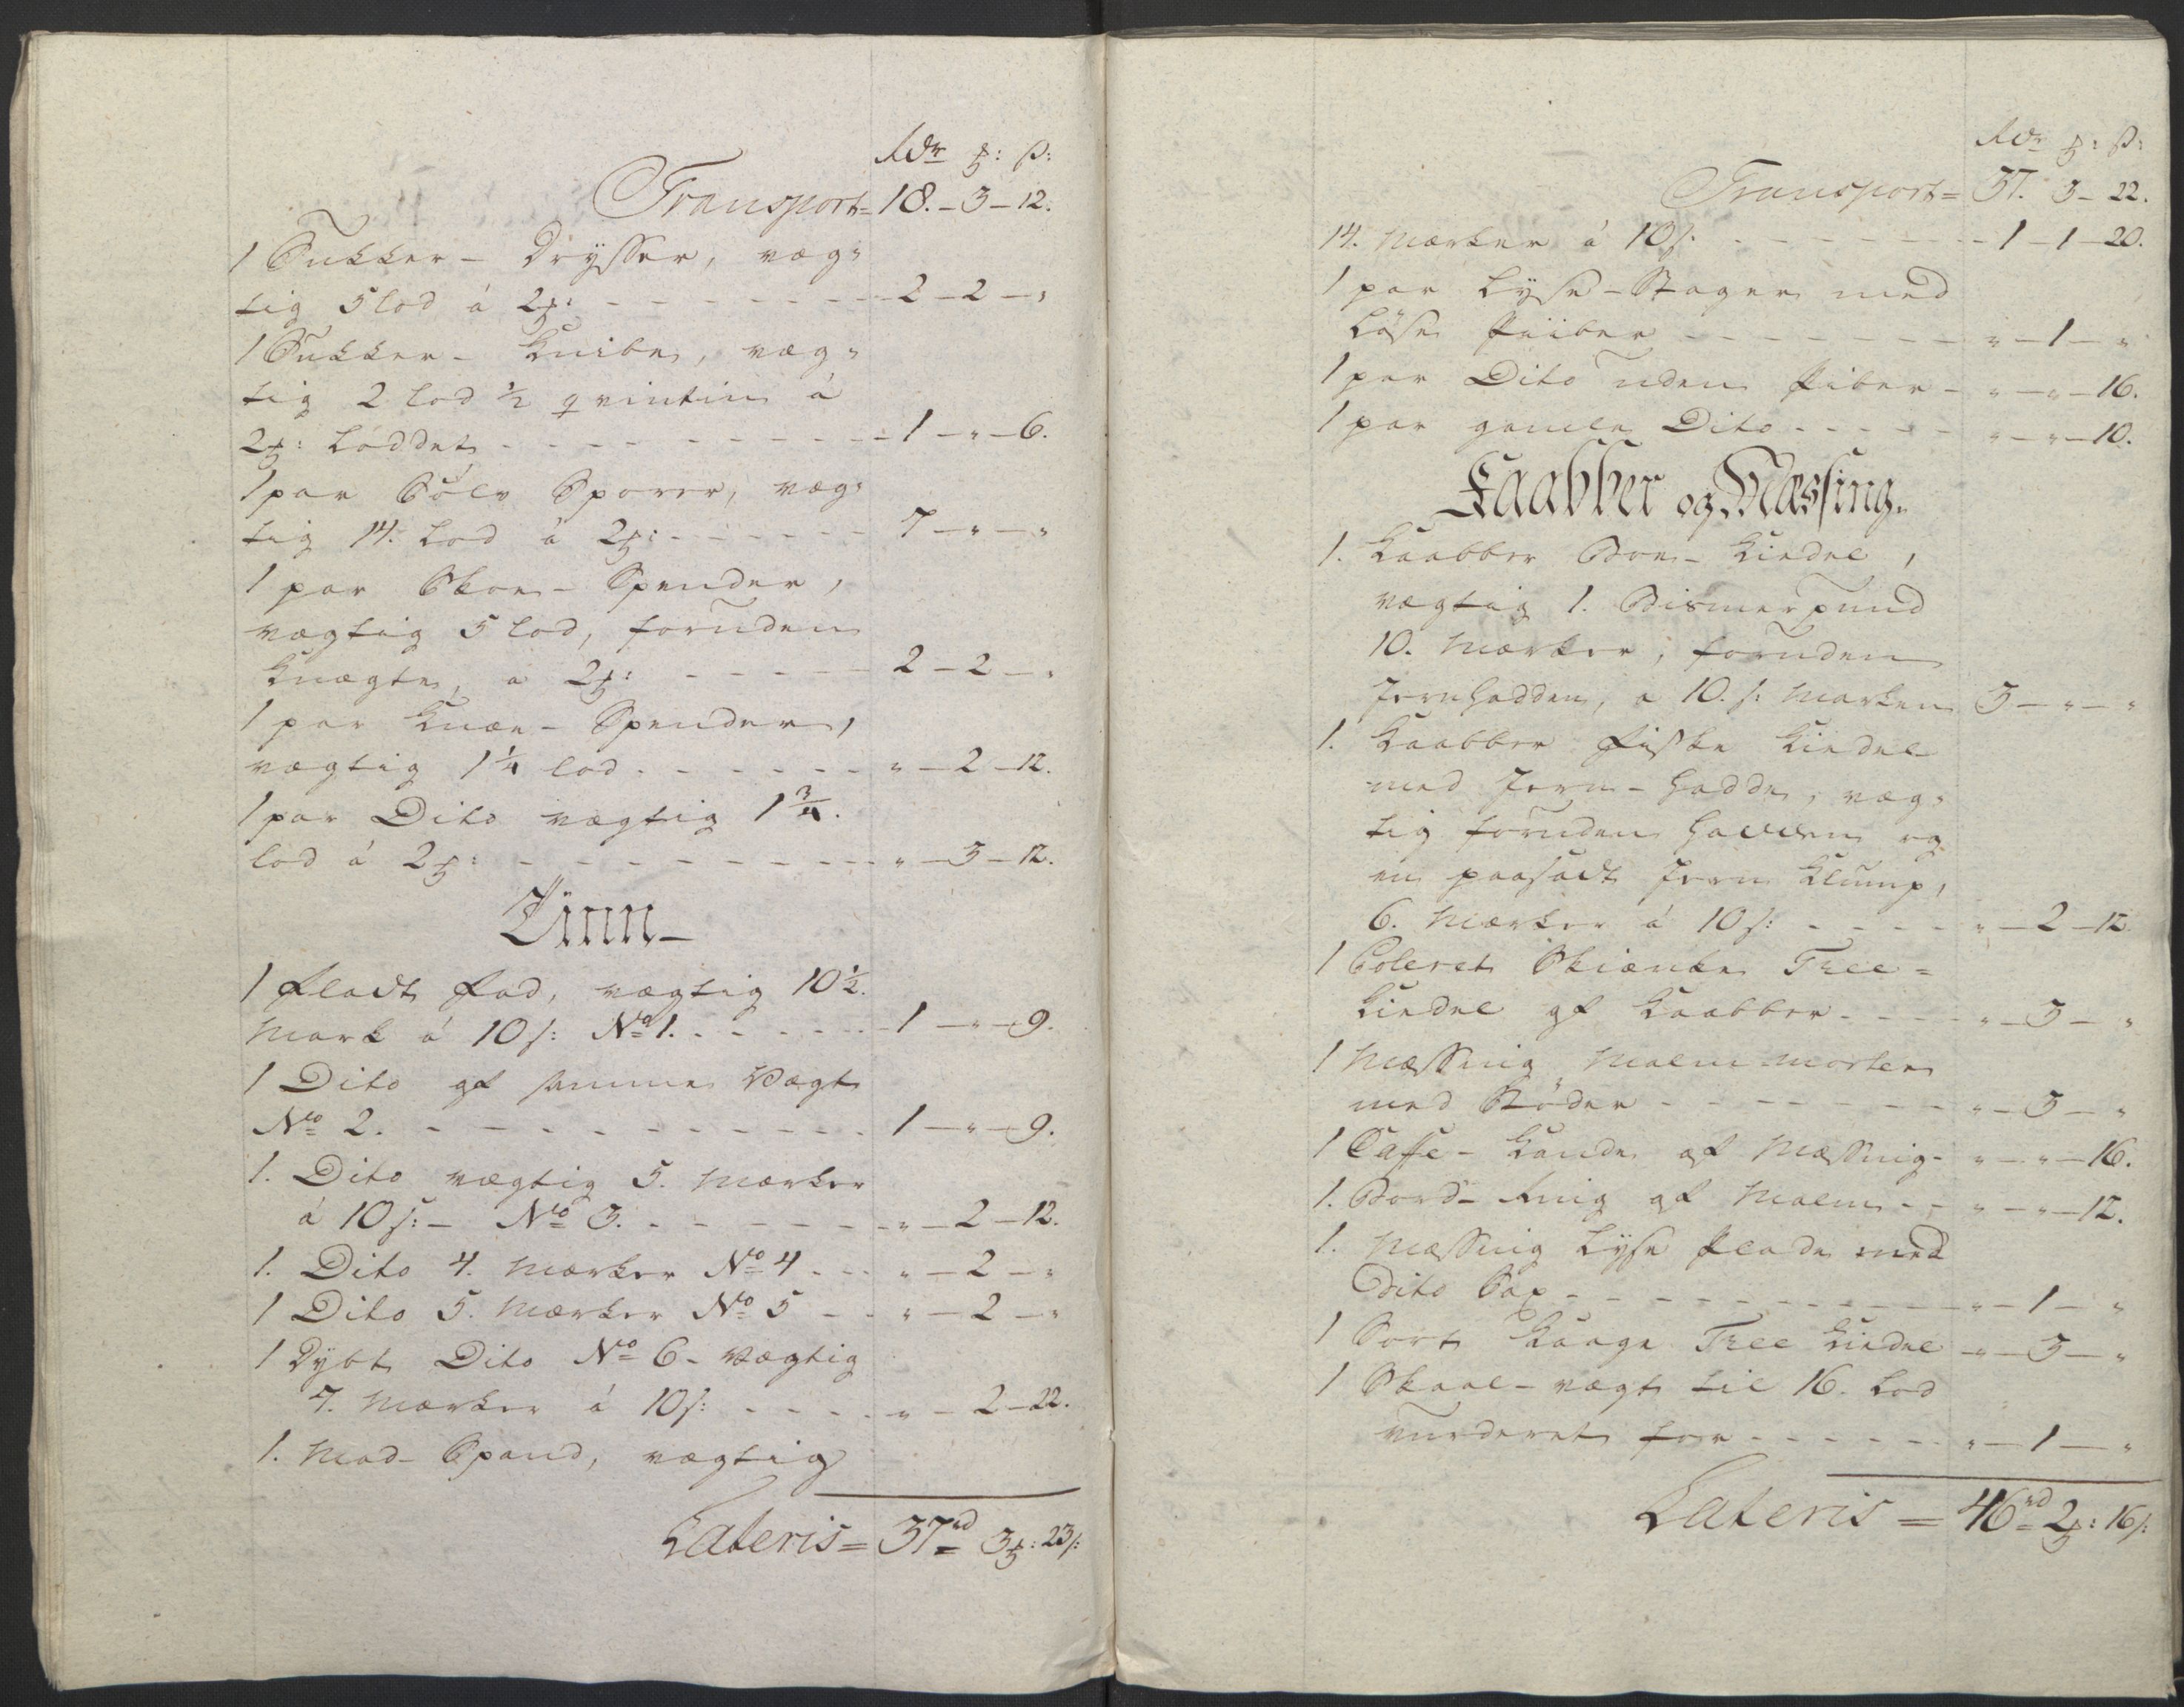 Rdr ℔: ß:
Transport = 18. - 3 - 12.
1 Sukker - Drysser, væg=
tig 5 lod á 2℔: - - - - - 2 - 2 - "
1 Sukker - Knibe, væg=
tig 2 lod ½ qvintin á
2℔: Loddet - - - - - 1 - " - 6.
1 par Sölv Sporer, væg=
tig 14. Lod á 2℔: - - - - - 7 - " - "
1 par Skoe - Spender,
vægtig 5 lod, foruden
Knægte, a 2℔: - - - - - 2 - 2 - "
1 par Knæe - Spender,
vægtig 1¼ lod - - - - - " - 2 - 12.
1 par Dito vægtig 1¾.
lod á 2℔: - - - - - " - 3 - 12.
Tinn -
1 fladt Fad, vægtig 10½.
Mark á 10 ß: No 1. - - - - - 1 - " - 9.
1 Dito af samme Vægt
No 2. - - - - - 1 - " - 9.
1. Dito vægtig 5. Mærker
á 10 ß: - No 3. - - - - - " - 2 - 12.
1. Dito 4. Mærker No 4 - - - " - 2 - "
1 Dito 5. Mærker No 5 - - " - 2 - "
1 Dybt Dito No 6 - Vægtig
7. Mærker á 10 ß: - - - - " - 2 - 22.
1. Mad - Spand, vægtig
Lateris = 37rd 3℔: 23 ß:
Rdr ℔: ß:
Transport = 37. 3 - 22.
14. Mærker á 10 ß. - - - - - 1 - 1 - 20.
1 par Lyse - Stager med
Löse Piiber - - - - - " - 1 - "
1 par Dito uden Piber - " - " - 16.
1 par gamle Dito - - - - - " - " - 10.
Kaabber og Mæssing.
1. Kaabber Boe - Kiedel,
vægtig 1. Bismerpund
10. Mærker, foruden
Jernhadden, a 10. ß: Marken 3 - " - "
1. Kaabber Fiske Kiedel
med Jern - Hadde, væg=
tig foruden Hadden og
en paasadt Jern Klump,
6. Mærker á 10 ß: - - - - " - 2 - 12
1 Coleret Skiænke Thee =
Kiedel af Kaabber - - - - " - 3 - "
1 Mæssing Malm morter
med Stöder - - - - - " - 3 - "
1 Caffe - Kande af Mæssing - " - " - 16.
1. Bord - Ring af Malm - - " - " - 12.
1. Mæssing Lyse Plade med
Dito Sax - - - - - " - 1 - "
1 Sort Kaage Thee Kiedel - " - 3 - "
1 Skaal - vægt til 16. Lod
vurderet for - - - - - " - 1 - "
Lateris = 46rd 2℔: 16 ß: